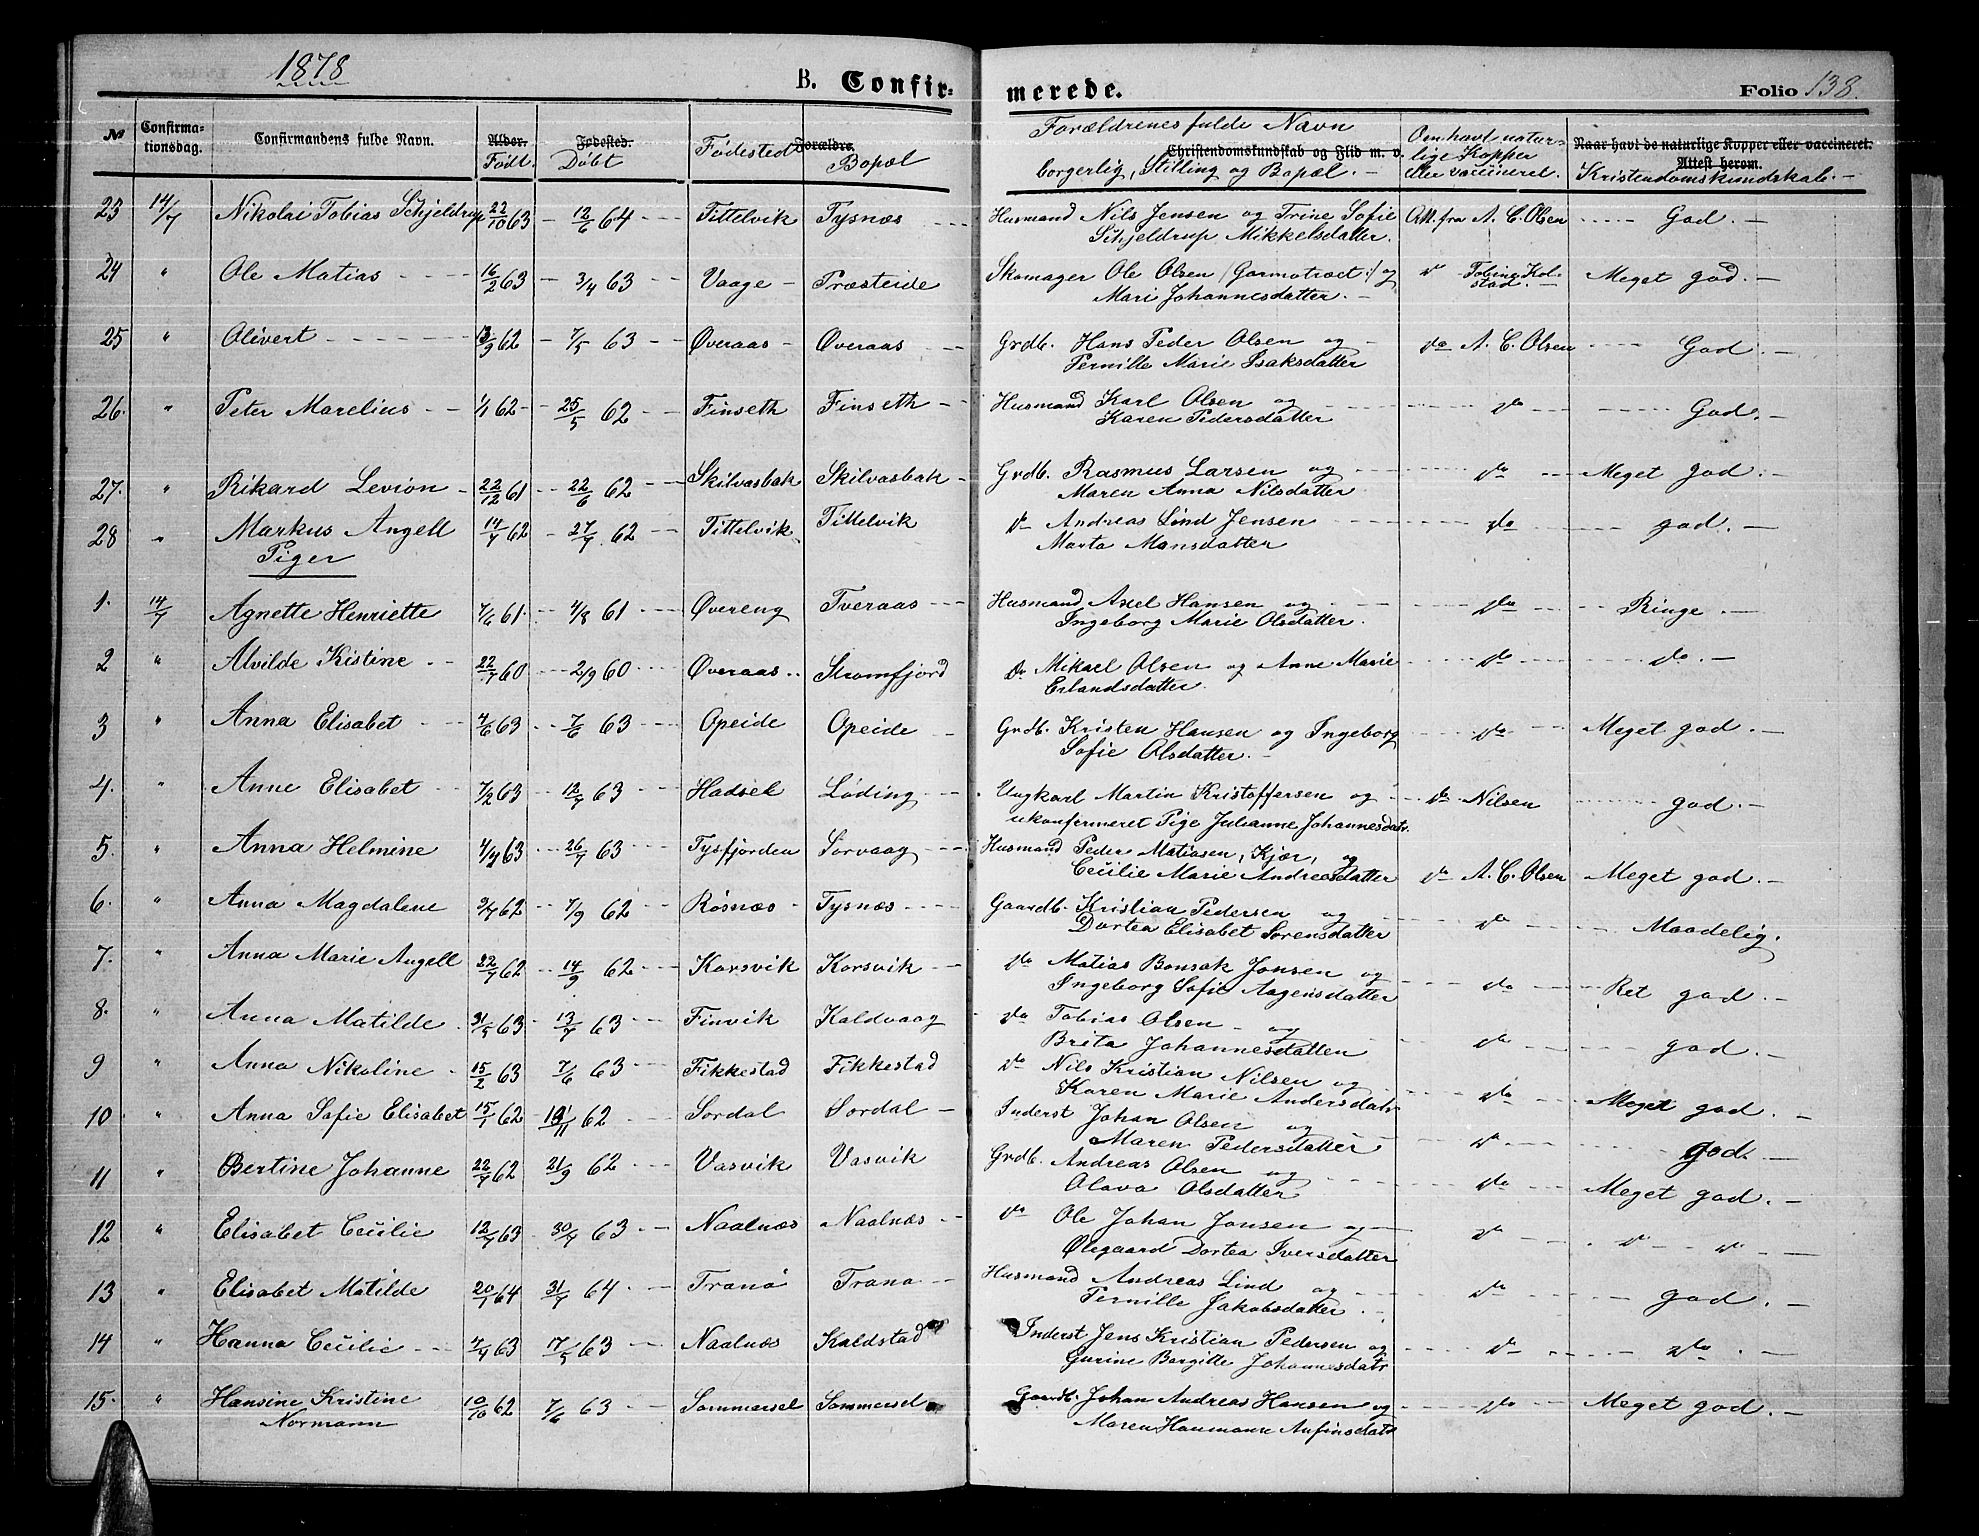 1878
B. Confir-
merede.
Folio 138.
No Confirmationsdag. Confirmandens fulde Navn. Alder. Født. Fødested. Døbt Fødested Forældre. Bopæl
Forældrenes fulde Navn Christendomskundskab og Flid m. v. borgerlig, Stilling og Bopæl. Om havt naturlige Kopper eller vaccineret. Naar havt de naturlige Kopper eller vaccineret. Attest herom. Kristendomskundskab.
23 14/7 Nikolai Tobias Schjeldrup 22/10 63 12/6 64 Tittelvik Tysnæs Husmand Nils Jensen og Trine Sofie Att. fra A. C. Olsen God.
Schjeldrup Mikkelsdatter.
24 " Ole Matias 16/2 63 3/4 63 Vaage Præsteide Skomager Ole Olsen (Garmotræet) og do Tobias Kol- Meget god.
Mari Johannesdatter. stad.
25 " Olivert 13/9 62 7/5 63 Øveraas Øveraas Grdb. Hans Peder Olsen og do A. C. Olsen God.
Pernille Marie Isaksdatter
26. " Peter Marelius 1/1 62 25/5 62 Finseth Finseth Husmand Karl Olsen og do God.
Karen Pedersdatter
27. " Rikard Levion 22/12 61 22/6 62 Skilvasbak Skilvasbak Grdb. Rasmus Larsen og do Meget god.
Maren Anna Nilsdatter
28 " Markus Angell 14/7 62 27/7 62 Tittelvik Tittelvik do Andreas Lind Jensen do god.
Marta Mansdatter
Piger
1. 14/7 Agnette Henriette 7/6 61 4/8 61 Øvereng Tveraas Husmand Axel Hansen og do Ringe.
Ingeborg Marie Olsdatter.
2 " Alvilde Kistine 22/7 60 2/9 60 Øveraas Stromfjord do Mikael Olsen og Anne Marie do do.
Erlandsdatter.
3 " Anna Elisabet 4/6 63 7/6 63 Opeide Opeide Grdb. Kristen Hansen og Ingeborg do Meget god.
Sofie Olsdatter.
4. " Anne Elisabet 7/2 63 12/7 63 Hadsel Løding Ungkarl Martin Kristoffersen og do Nilsen god.
ukonfermeret Pige Julianne Johannesdatr.
5. " Anna Helmine 4/4 63 26/7 63 Tysfjorden Sørvaag Husmand Peder Matiasen, Kjær, og do A. C. Olsen Meget god.
Cecilie Marie Andreasdatter
6. " Anna Magdalene 3/7 62 7/9 62 Røsnæs Tysnæs Gaardb. Kristian Pedersen og do Maadelig.
Dortea Elisabet Sørensdatter
7. " Anna Marie Angell 22/7 62 14/9 62 Korsvik Korsvik do Matias Bonsak Jonsen og do Ret god.
Ingeborg Sofie Aagensdatter
8. " Anna Matilde 31/5 63 13/7 63 Finvik Kaldvaag do Tobias Olsen og do god.
Brita Johannesdatter
9 " Anna Nikoline 15/2 63 7/6 63 Fikkestad Fikkestad do Nils Kristian Nilsen og do Meget god.
Karen Marie Andersdatr
10 " Anna Sofie Elisabet 15/1 62 /11 62 Sørdal Sørdal Inderst Johan Olsen og do god.
Maren Pedersdatter
11 " Bertine Johanne 22/7 62 21/9 62 Vasvik Vasvik Grdb. Andreas Olsen og do Meget god.
Olava Olsdatter
12 " Elisabet Cecilie 12/7 63 30/7 63 Naalnæs Naalnæs do Ole Johan Jonsen og do do do
Ølegaard Dortea Iversdatter
13 " Elisabet Matilde 20/1 64 31/7 64 Tranø Tranø Husmand Andreas Lind og do god.
Pernille Jakobsdatter
14 " Hanna Cecilie 4/4 63 17/5 63 Naalnæs Kaldstad Inderst Jens Kristian Pedersen og do do.
Gurine Bergitte Johannesdatr
15. " Hansine Kristine 10/10 62 7/6 63 Sommersel Sommersel Gaardb. Johan Andreas Hansen og do Meget god.
Normann Maren Haumann Anfinsdatr